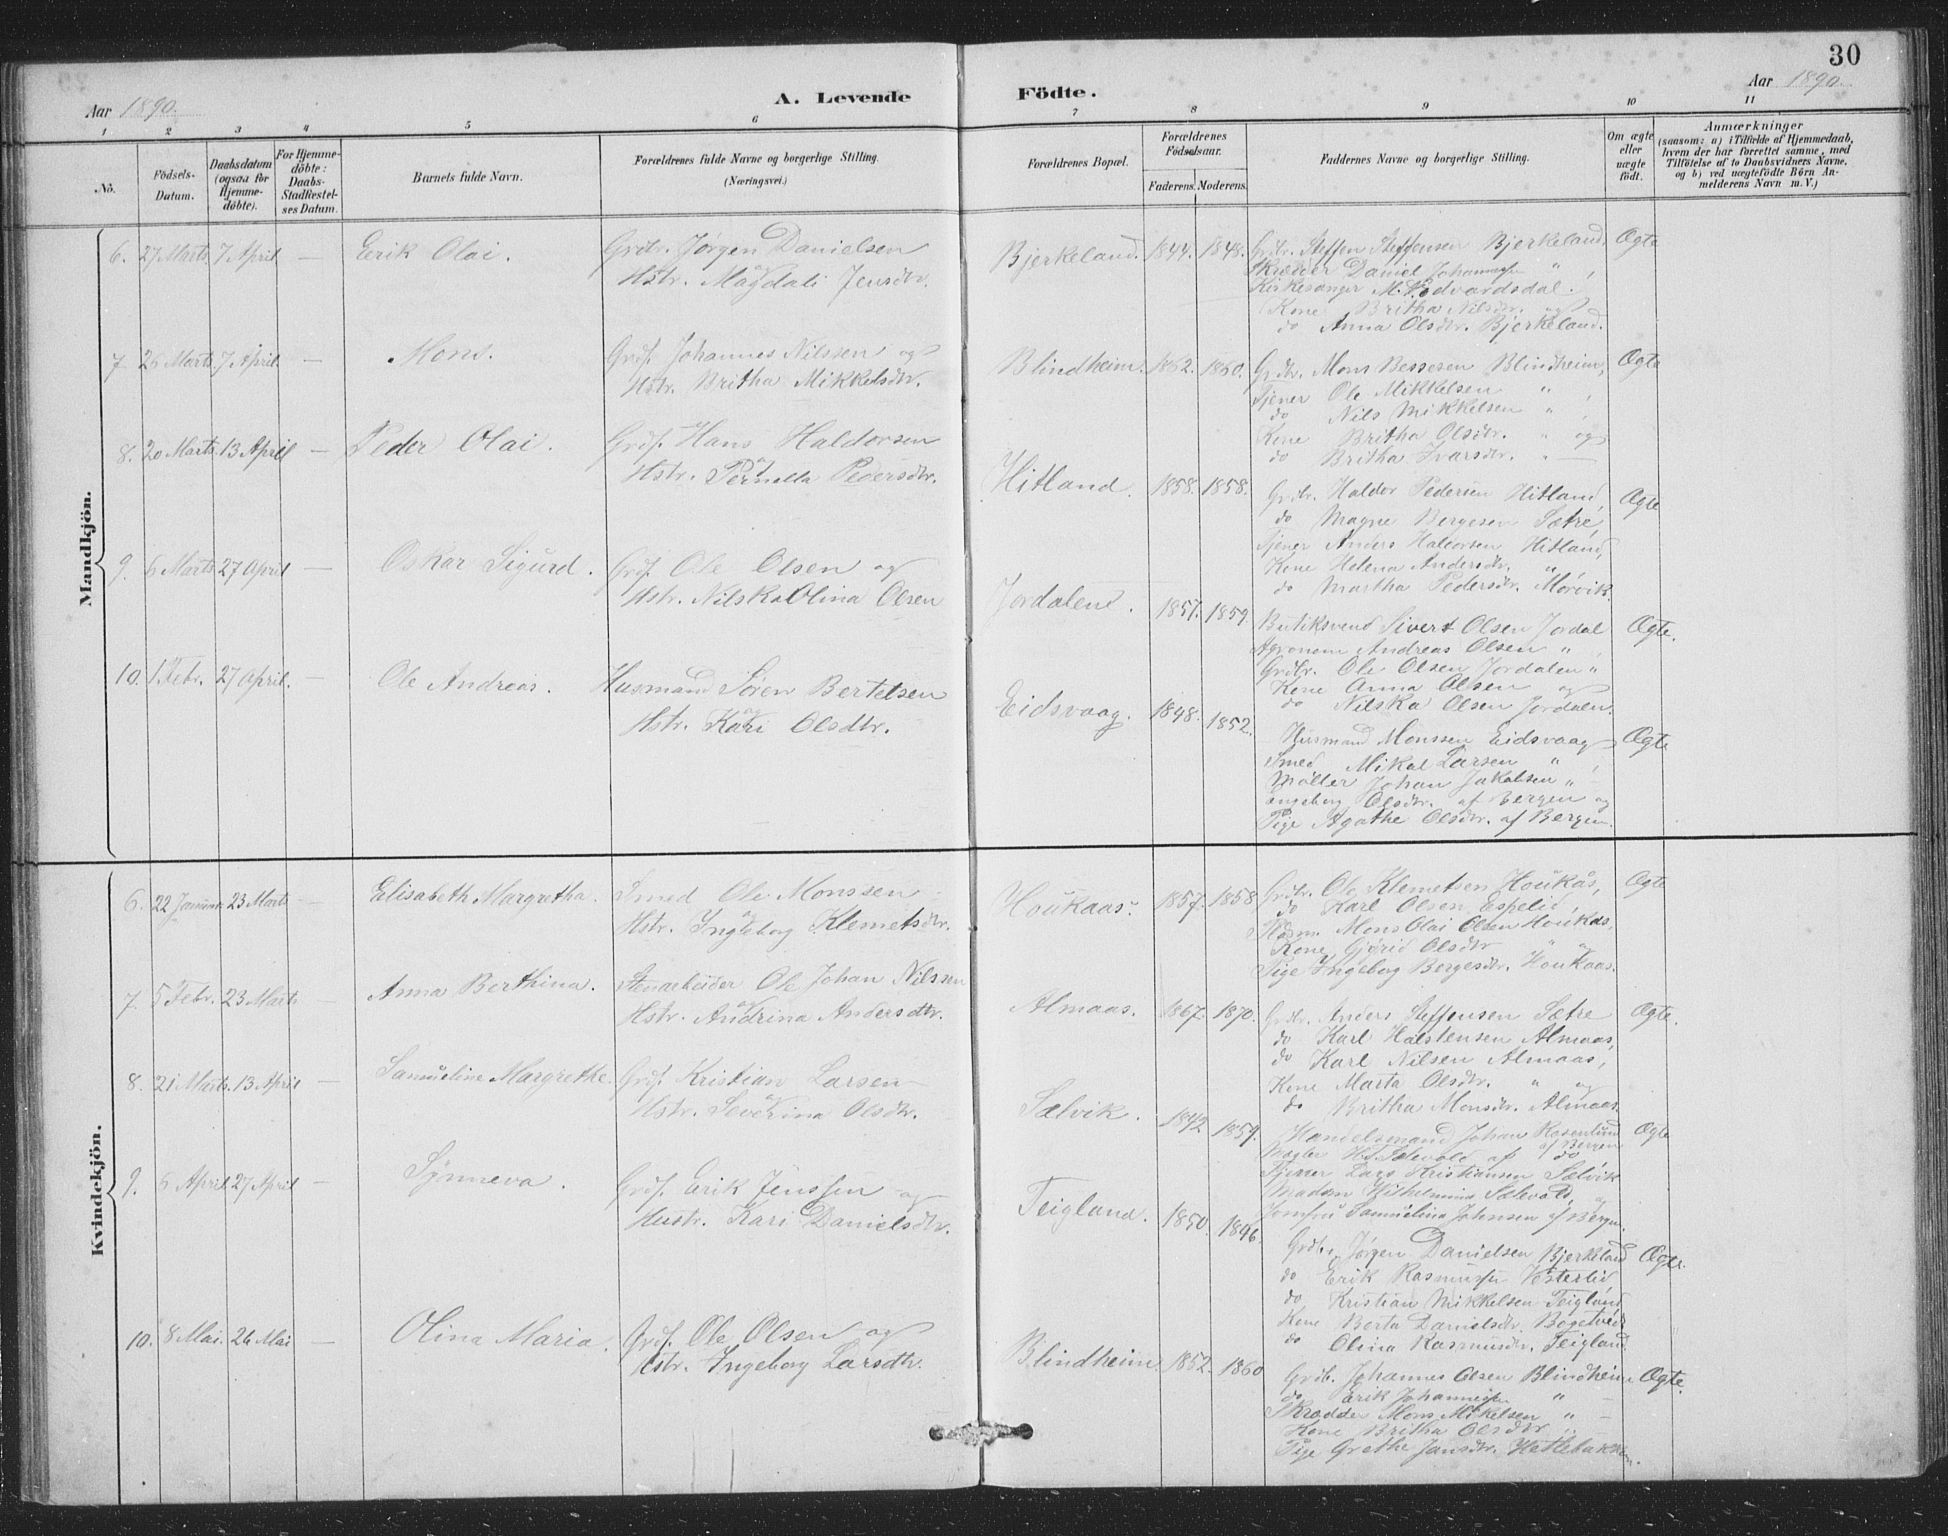 30
Aar 1890.
A. Levende
Födte.
Aar 1890.
1 2 3 4 5 6 7 8 9 10 11
No.
Födsels-
Datum.
Daabsdatum
(ogsaa for
Hjemme-
döbte).
For Hjemme-
döbte:
Daabs-
Stadfæstel-
ses Datum.
Barnets fulde Navn.
Forældrenes fulde Navne og borgerlige Stilling.
(Næringsvei.)
Forældrenes Bopæl.
Forældrenes
Födselsaar.
Faderens. Moderens.
Faddernes Navne og borgerlige Stilling.
Om ægte
eller
uægte
födt.
Anmærkninger
(saasom: a) i Tilfælde af Hjemmedaab,
hvem der har forrettet samme, med
Tilföielse af to Daabsvidners Navne,
og b) ved uægtefödte Börn An-
melderens Navn m. V.)
Mandkjön.
6. 27 Marts 7 April — Erik Olai.
Grdbr. Jørgen Danielsen
og
Hstr. Magdali Jensdtr.
Bjerkeland. 1844. 1848.
Grdbr. Steffen Steffensen Bjerkeland, Ægte
Skræder Daniel Johannessen " ,
Kirkesanger M. Edvardsdal.
Kone Britha Nilsdtr. og
do Anna Olsdtr. Bjerkeland.
7. 26 Marts 7 April — Mons.
Grdf. Johannes Nilssen og
Hstr. Britha Mikkelsdtr.
Blindheim. 1862. 1860.
Grdbr. Mons Bessesen Blindheim, Ægte
Tjener Ole Mikkelsen " ,
do Nils Mikkelsen " ,
Kone Britha Olsdtr. " og
do Britha Ivarsdtr. " —
8. 20 Marts 13 April — Peder Olai.
Grdf. Hans Haldorsen
og
Hstr. Pernella Pedersdtr.
Hitland. 1858. 1858.
Grdbr. Haldor Pedersen Hitland, Ægte
do Magne Bergesen Sætre,
Tjener Anders Haldorsen Hitland,
Kone Helena Andersdtr. " ,
do Martha Pedersdtr. Morvik.
9. 6 Marts 27 April — Oskar Sigurd.
Grdf. Ole Olsen og
Hstr. Nilska Olina Olsen
Jordalen. 1857. 1859.
Butiksvend Sivert Olsen Jordal Ægte.
Agronom Andreas Olsen " ,
Grdbr. Ole Olsen Jordalen "
Kone Anna Olsen og
do Nilska Olsen Jordalen.
10. 1 Febr. 27 April. — Ole Andreas.
Husmand Søren Bertelsen
og
Hstr. Kari Olsdtr.
Eidsvaag. 1848. 1852.
Husmand Monssen Eidsvaag Ægte
Smed Mikal Larsen " ,
Møller Johan Jakobsen " —
Ingeborg Olsdtr. af Bergen og
Pige Agathe Olsdtr. af Bergen.
Kvindekjön.
6. 22 Januar 23 Marts — Elisabeth Margretha.
Smed Ole Monssen
og
Hstr. Ingeborg Klemetsdtr.
Houkaas. 1857. 1858
Grdbr. Ole Klemetsen Houkås, Ægte
do Karl Olsen Espelid,
Mons Olai Olsen Houkås,
Kone Gjørid Olsdtr " "
Pige Ingeborg Bergesdtr. Houkaas.
7. 5 Febr. 23 Marts — Anna Berthina.
Stenarbeider Ole Johan Nilssen
og
Hstr. Andrina Andersdtr.
Almaas. 1867. 1870.
Grdbr. Anders Steffensen Sætre Ægte.
do Karl Halstensen Almaas,
do Karl Nilsen Almaas,
Kone Marta Olsdtr. " og
do Britha Monsdtr. Almaas.
8. 21 Marts. 13 April — Samueline Margrethe.
Grdf. Kristian Larsen
og
Hstr. Severina Olsdtr.
Sælvik. 1842 1859.
Handelsmand Johan Rosenlund Ægte
af Bergen
Mægler H. Sælevold af do
Tjener Lars Kristiansen Sælvik
Madam Wilhelmina Sælevold, og
Jomfru Samuelina Johnsen af Bergen.
9. 6 April 27 April — Synneva.
Grdf. Erik Jenssen og
Hustr. Kari Danielsdtr.
Teigland. 1850. 1846.
Grdbr. Jørgen Danielsen Bjerkeland Ægte.
do Erik Rasmussen Vesterlid
do Kristian Mikkelsen Teigland,
Kone Berta Danielsdtr. Bøgetveit
do Olina Rasmusdtr. Teigland.
10. 8 Mai. 26 Mai — Olina Maria.
Grdf. Ole Olsen og
Hstr. Ingeborg Larsdtr.
Blindheim 1852. 1860
Grdb. Johannes Olsen Blindheim Ægte.
do Erik Johannessen " —
Skrædder Mons Mikelsen " —
Kone Britha Olsdtr "
Pige Grethe Jansdtr. Hetlebakken.